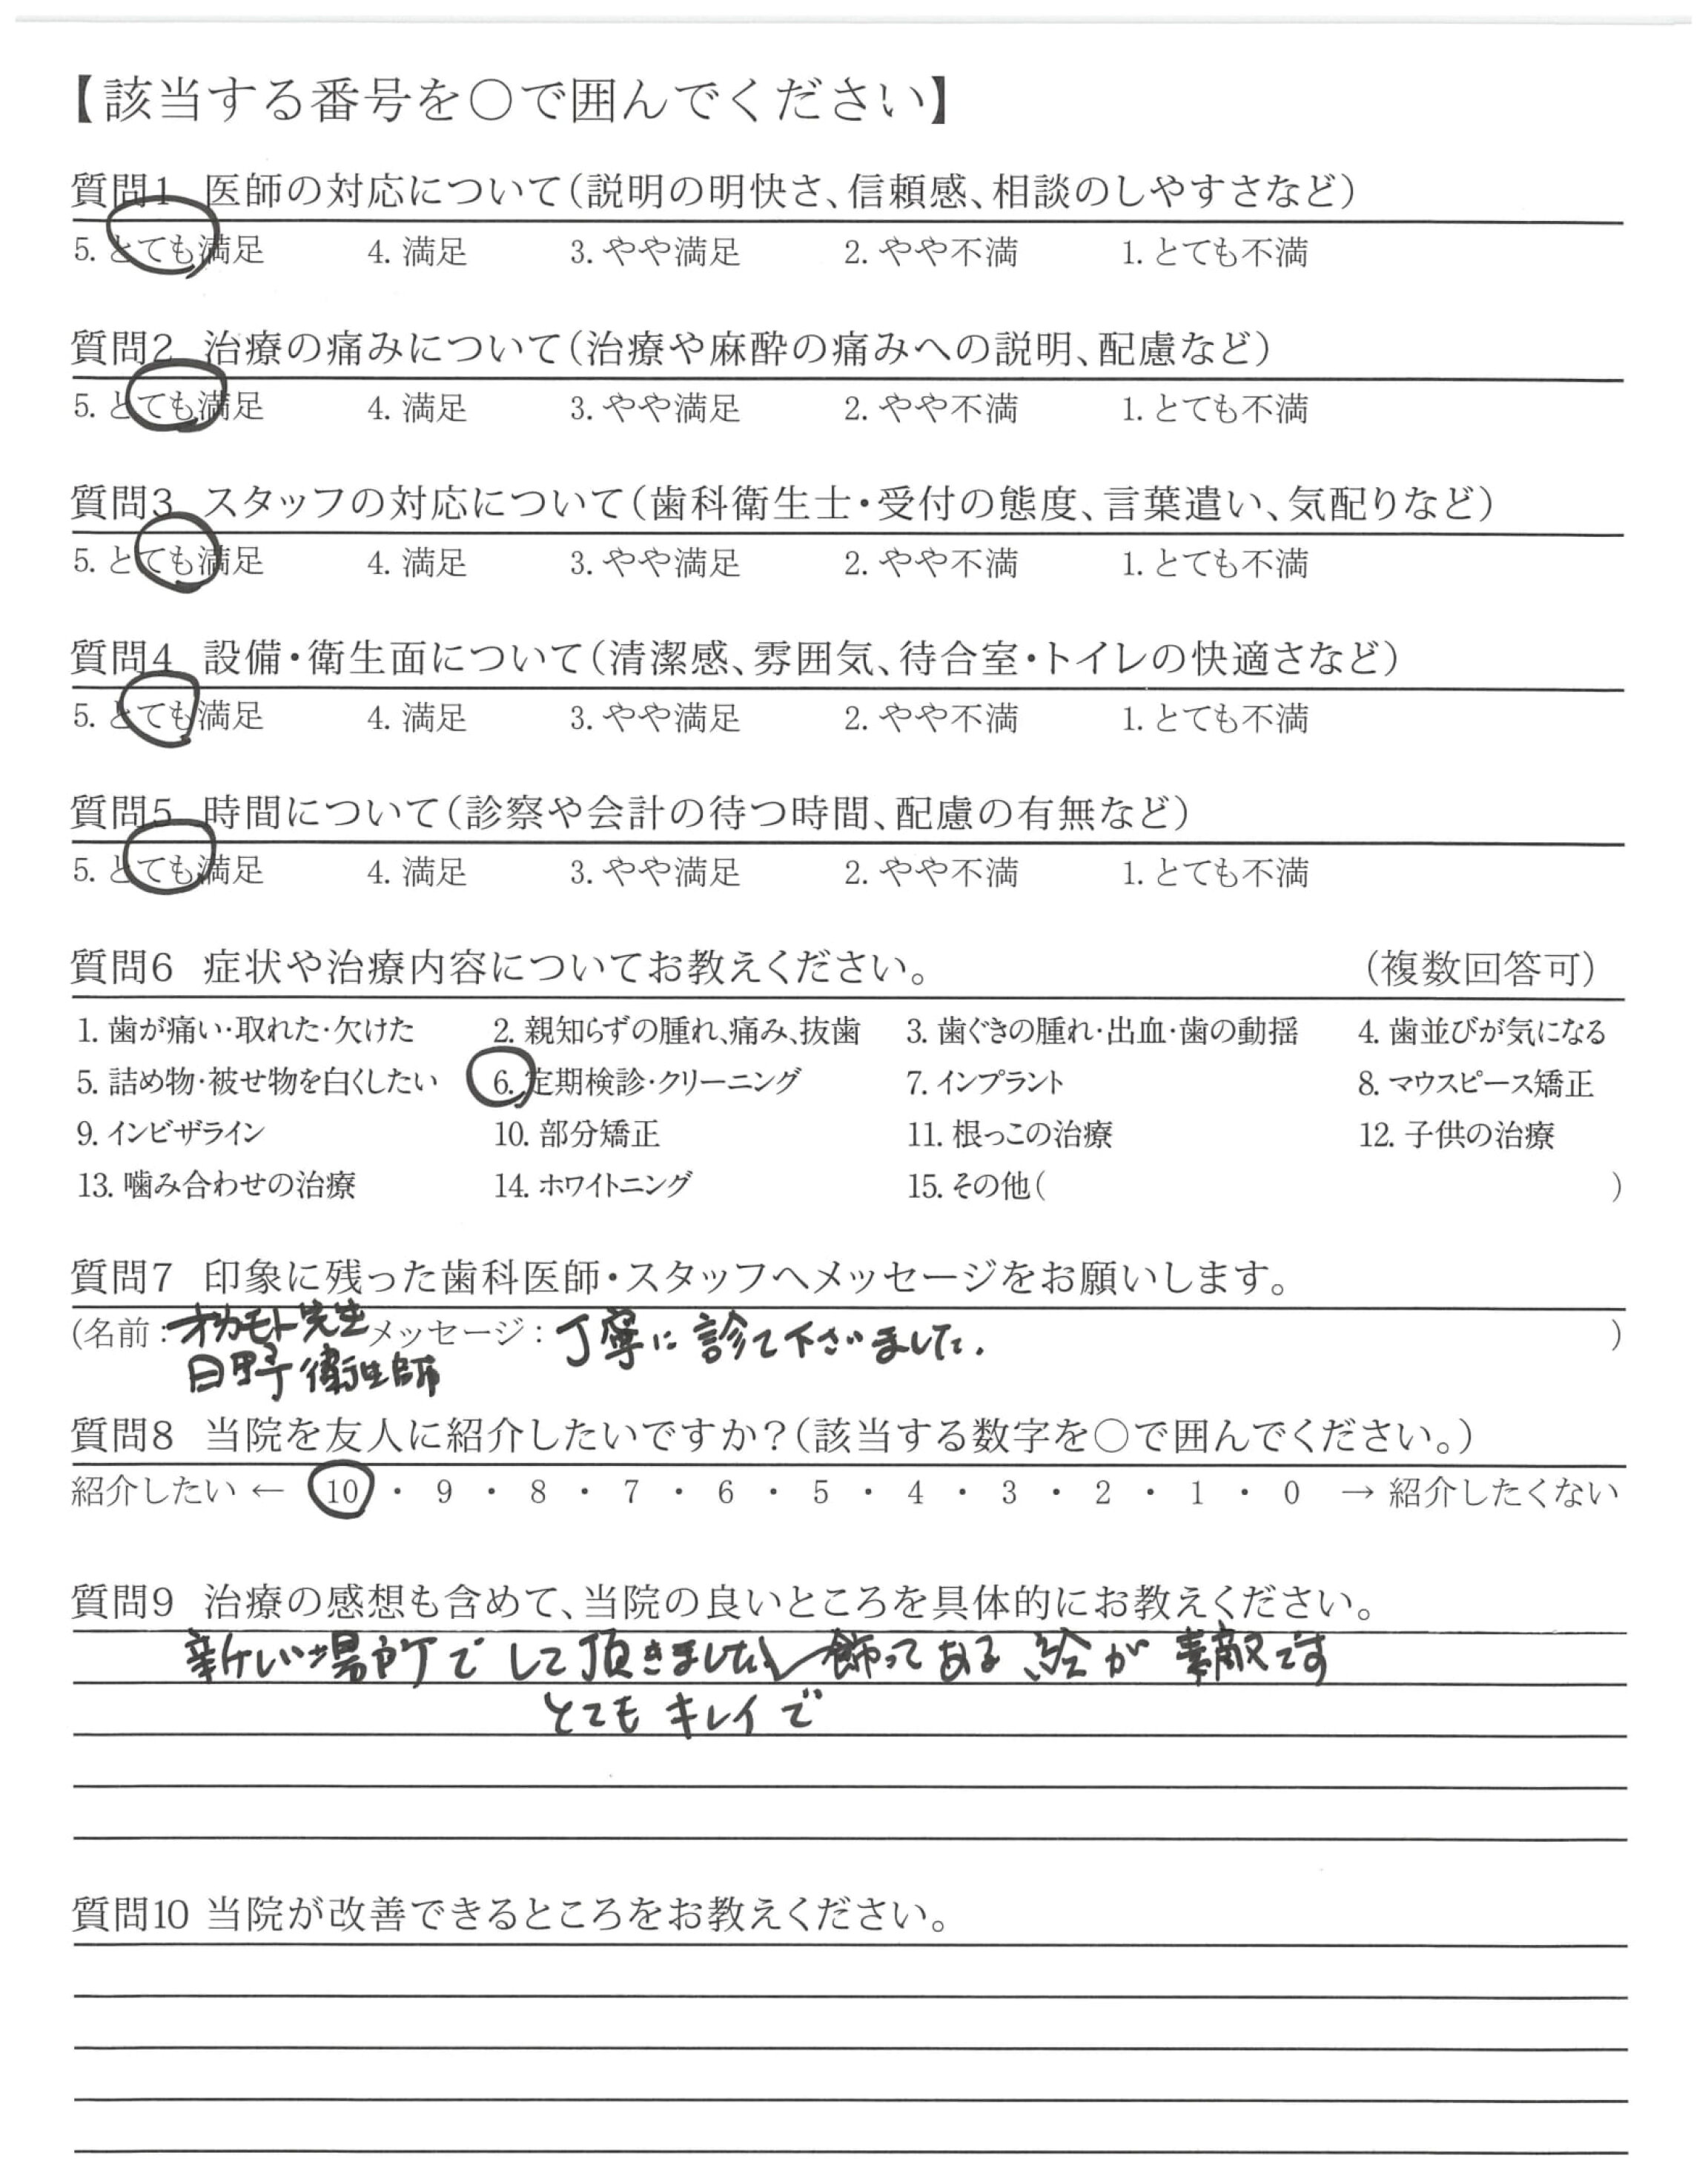 【該当する番号を○で囲んでください】
質問1 医師の対応について(説明の明快さ、信頼感、相談のしやすさなど)
5. とても満足 4. 満足 3. やや満足 2. やや不満 1. とても不満
質問2 治療の痛みについて(治療や麻酔の痛みへの説明、配慮など)
5. とても満足 4. 満足 3. やや満足 2. やや不満 1. とても不満
質問3 スタッフの対応について(歯科衛生士・受付の態度、言葉遣い、気配りなど)
5. とても満足 4. 満足 3. やや満足 2. やや不満 1. とても不満
質問4 設備・衛生面について(清潔感、雰囲気、待合室・トイレの快適さなど)
5. とても満足 4. 満足 3. やや満足 2. やや不満 1. とても不満
質問5 時間について(診察や会計の待つ時間、配慮の有無など)
5. とても満足 4. 満足 3. やや満足 2. やや不満 1. とても不満
質問6 症状や治療内容についてお教えください。 (複数回答可)
1. 歯が痛い・取れた・欠けた 2. 親知らずの腫れ、痛み、抜歯 3. 歯ぐきの腫れ・出血・歯の動揺 4. 歯並びが気になる
5. 詰め物・被せ物を白くしたい 6. 定期検診・クリーニング 7. インプラント 8. マウスピース矯正
9. インビザライン 10. 部分矯正 11. 根っこの治療 12. 子供の治療
13. 噛み合わせの治療 14. ホワイトニング 15. その他( )
質問7 印象に残った歯科医師・スタッフへメッセージをお願いします。
(名前:オカモト先生 メッセージ:丁寧に診て下さいました. )
日野衛生師
質問8 当院を友人に紹介したいですか?(該当する数字を○で囲んでください。)
紹介したい ← 10 ・ 9 ・ 8 ・ 7 ・ 6 ・ 5 ・ 4 ・ 3 ・ 2 ・ 1 ・ 0 → 紹介したくない
質問9 治療の感想も含めて、当院の良いところを具体的にお教えください。
新しい場所でして頂きました 飾ってある絵が素敵です
とてもキレイで
質問10 当院が改善できるところをお教えください。